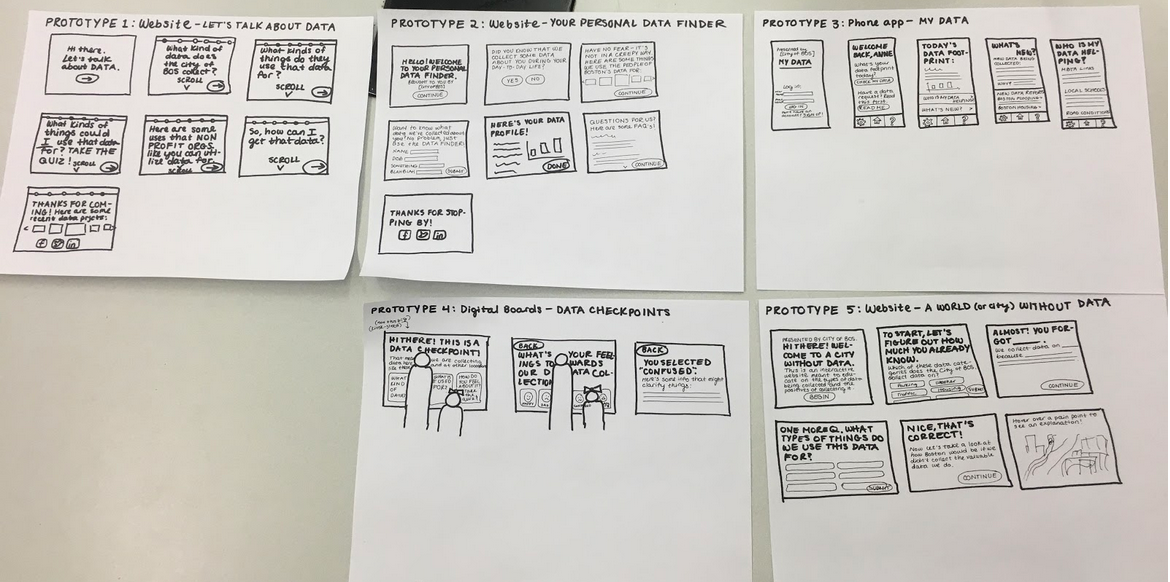 PROTOTYPE 1: Website - LET'S TALK ABOUT DATA
Hi there.
Let's talk
about DATA.
What kind of
data does
the city of
BOS collect?
SCROLL
What kinds of
things do they
use that data
for?
SCROLL
What kinds of
things could I
use that data
for? TAKE THE
QUIZ! SCROLL
Here are some
uses that NON
PROFIT ORGS
like you can uti-
lize data for.
SCROLL
So, how can I
get that data?
SCROLL
THANKS FOR COM-
ING! Here are some
recent data projcts:
f
in
PROTOTYPE 2: Website - YOUR PERSONAL DATA FINDER
HELLO! WELCOME
TO YOUR PERSONAL
DATA FINDER.
BROUGHT TO YOU BY
CONTINUE
DID YOU KNOW THAT WE
COLLECT SOME DATA
ABOUT YOU DURING YOUR
DAY-TO-DAY LIFE?
YES
NO
HAVE NO FEAR - IT'S
NOT IN A CREEPY WAY.
HERE ARE SOME THINGS
WE USE THE PEOPLE OF
BOSTON'S DATA FOR:
CONTINUE
WANT TO KNOW WHAT
DATA WE'VE COLLECTED ABOUT
YOU? NO PROBLEM, JUST
USE THE DATA FINDER!
NAME
DOB
SOMETHING
BLAHBLAH
SUBMIT
HERE'S YOUR DATA
PROFILE!
DONE
QUESTIONS FOR US?
HERE ARE SOME FAQ's!
CONTINUE
THANKS FOR STOP-
PING BY!
f
in
PROTOTYPE 3: Phone app - MY DATA
Presented by
[City of BOS]
MY DATA
Log in:
LOG IN
WELCOME
BACK, ANNIE
What's your
data footprint
today?
Have a data
request? Read
this first.
README
TODAY'S
DATA FOOT-
PRINT:
WHO IS MY DATA
HELPING?
WHAT'S NEW?
WHAT'S
NEW?
NEW DATA BEING
COLLECTED:
WHY?
NEW DATA REPORT
BOSTON HOUSING
WHO IS MY
DATA HEL-
PING?
META LINKS
LOCAL SCHOOLS
ROAD CONDITIONS
PROTOTYPE 4: Digital Boards - DATA CHECKPOINTS
HI THERE! THIS IS A
DATA CHECKPOINT!
That means we are collecting
data here and at other locations
WHAT
KIND
OF
DATA?
HOW DO
YOU FEEL
ABOUT IT?
BACK
WHAT'S YOUR FEEL-
INGS TOWARDS
OUR DATA COL-
LECTION
BACK
YOU SELECTED
"CONFUSED":
here's some info that might
clarify things:
PROTOTYPE 5: Website - A WORLD (or city) WITHOUT DATA
PRESENTED BY CITY OF BOS.
HI THERE! WEL-
COME TO A CITY
WITHOUT DATA.
This is an interactive
website meant to edu-
cate on the types of data
being collected and the
positives of collecting it.
BEGIN
TO START, LET'S
FIGURE OUT HOW
MUCH YOU ALREADY
KNOW.
Which of these data cate-
gories does the City of BOS
collect data on?
Parking
Weather
Traffic
Housing
SUBMIT
ALMOST! YOU FOR-
GOT ____.
We collect data on ____
because
CONTINUE
ONE MORE Q. WHAT
TYPES OF THINGS DO
WE USE THIS DATA
FOR?
SUBMIT
NICE, THAT'S
CORRECT!
Now let's take a look at
how Boston would be if we
didn't collect the valuable
data we do.
CONTINUE
Hover over a pain point to
see an explanation!